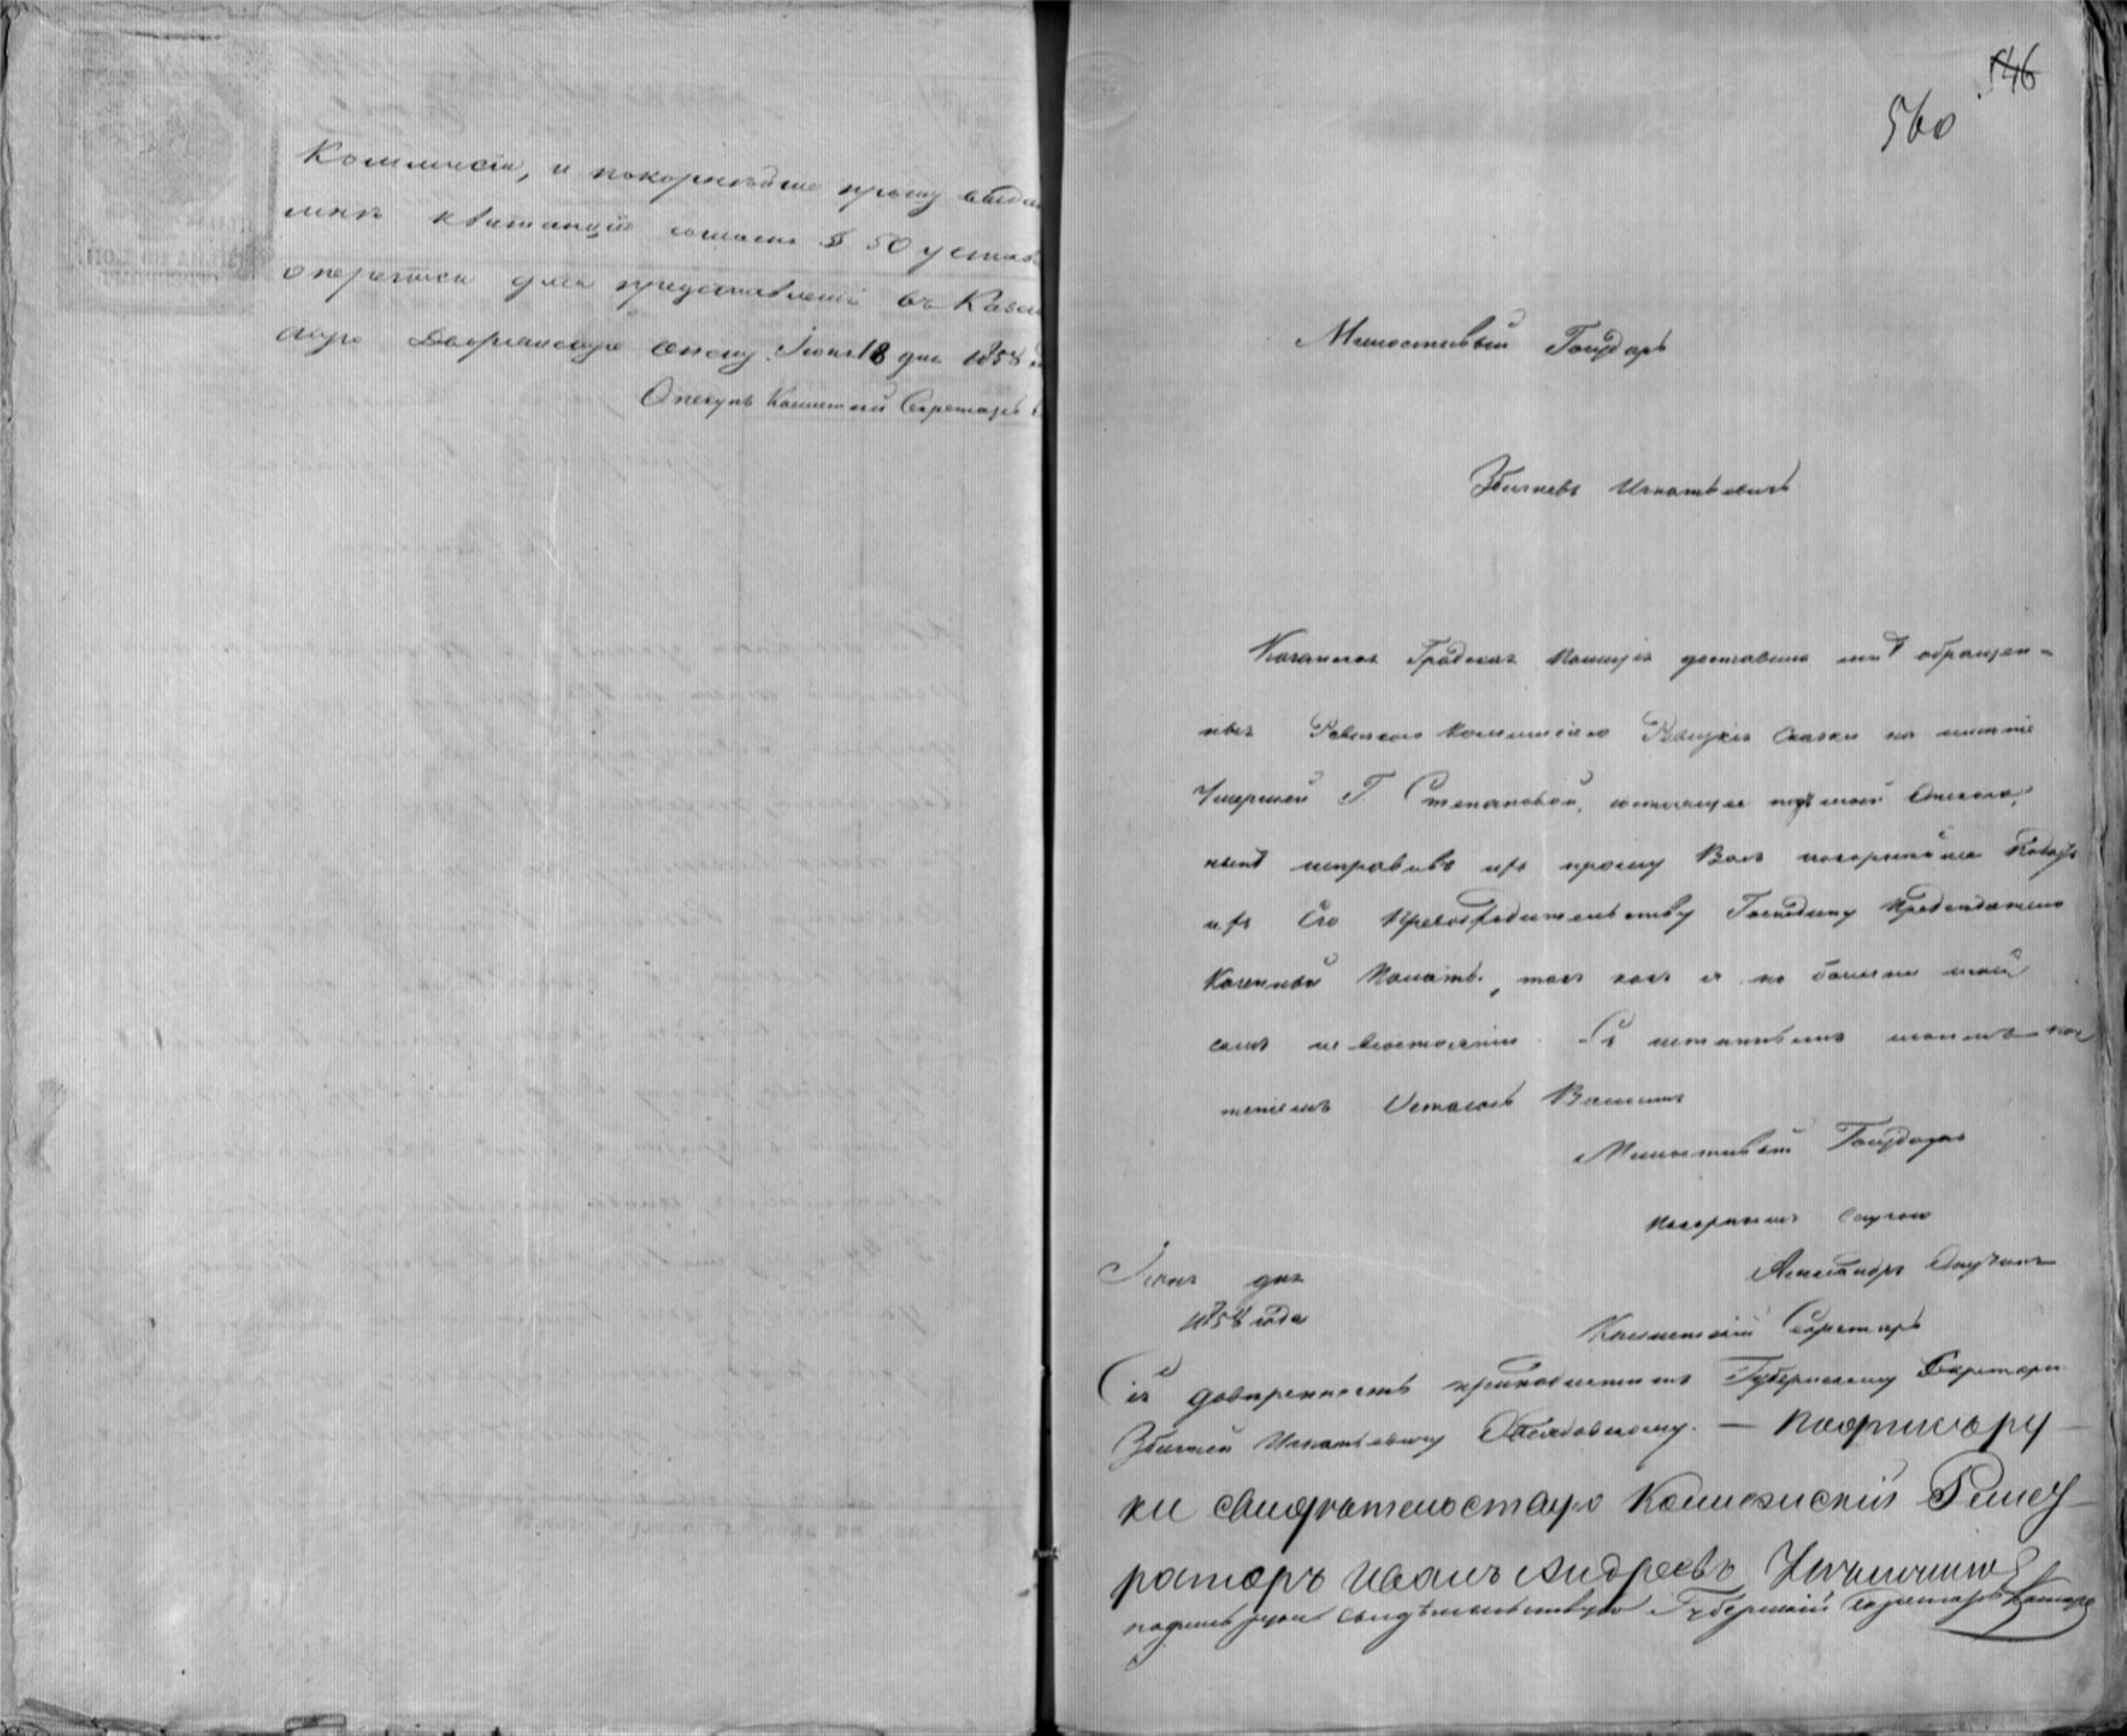 Коммисiи, и покорнѣйше прошу выда
мнѣ квитанцiю согласно § 50 устав
о переписи для представленiя въ Казан
скую Дворянскую Опеку. Iюня 18 дня 1858
Опекунъ Коллежскiй Секретарь
546
560
Милостивый Государь
Игнатьевичъ
Казанская Градская Полицiя доставила мнѣ обращен-
ныя Ревизскою Коммисiею Ревизскiя Сказки на имѣнiе
Умершей Г. Степановой, состоящее подъ моей Опекою,
нынѣ исправивъ ихъ прошу Васъ покорнѣйше Подать
ихъ Его Превосходительству Господину Предсѣдателю
Казенной Палаты, такъ какъ я по болѣзни моей
самъ не въ состоянiи. Съ истиннымъ моимъ поч
тенiемъ Остаюсь Вашимъ
Милостивый Государь
покорнымъ слугою
Александръ
Iюня дня
1858 года
Коллежскiй Секретарь
Сiя довѣренность принадлежитъ Губернскому Секретарю
Игнатьевичу — подписъ ру
ки свидѣтельствую Коллежскiй Реги
раторъ Иванъ Андреевъ
подпись руки свидѣтельствую Губернскiй Секретарь